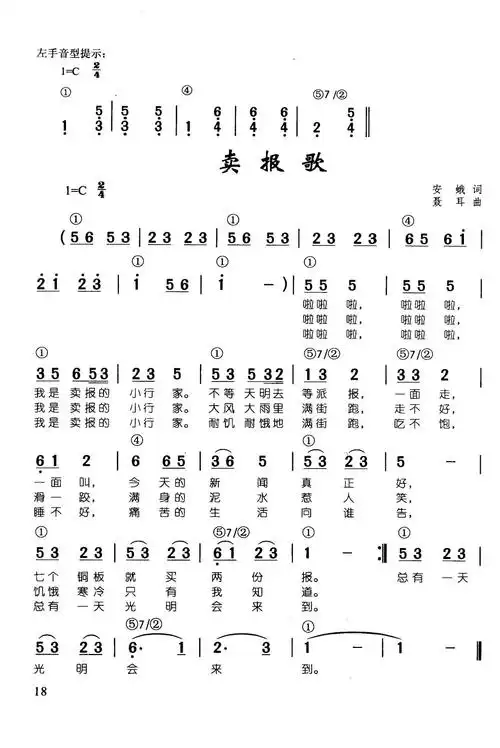 左手音型提示:
1=C 2/4
① ④ ⑤7/②
5 5 5 5 6 6 6 6 5 5
1 3 3 3 3 | 1 4 4 4 4 | 2 4 4 ‖
卖报歌
1=C 2/4
安 娥 词
聂 耳 曲
① ① ① ④
(5 6 5 3 | 2 3 2 3 | 5 3 2 3 | 5 6 5 | 6 5 6 1 |
① ① ⑤7/②
2 1 2 3 | 1 5 6 | 1 -) | 5 5 5 | 5 5 5 |
啦啦 啦, 啦啦 啦,
啦啦 啦, 啦啦 啦,
啦啦 啦, 啦啦 啦,
① ① ⑤7/②
3 5 6 5 3 | 2 3 5 | 5 3 5 3 2 | 1 3 2 | 3 3 5 |
我是 卖报的 小行 家。 不等 天明去 等派 报, 一面 走,
我是 卖报的 小行 家。 大风 大雨里 满街 跑, 走不 好,
我是 卖报的 小行 家。 耐饥 耐饿地 满街 跑, 吃不 饱,
④ ① ⑤7/②
6 1 2 | 6 6 5 | 3 6 5 3 | 5 3 2 3 | 5 - |
一面 叫, 今 天的 新 闻 真 正 好,
滑一 跤, 满 身的 泥 水 惹 人 笑,
睡不 好, 痛 苦的 生 活 向 谁 告,
① ⑤7/② ① ①
5 3 2 3 | 5 3 2 3 | 6 1 2 3 | 1 - :‖ 5 3 2 3 |
七 个 铜 板 就 买 两 份 报。 总 有 一 天
饥 饿 寒 冷 只 有 我 知 道。
总 有 一 天 光 明 会 来 到。
⑤7/② ①
5 3 2 3 | 6 · | 2 · | 1 - | 1 - ‖
光 明 会 来 到。
18